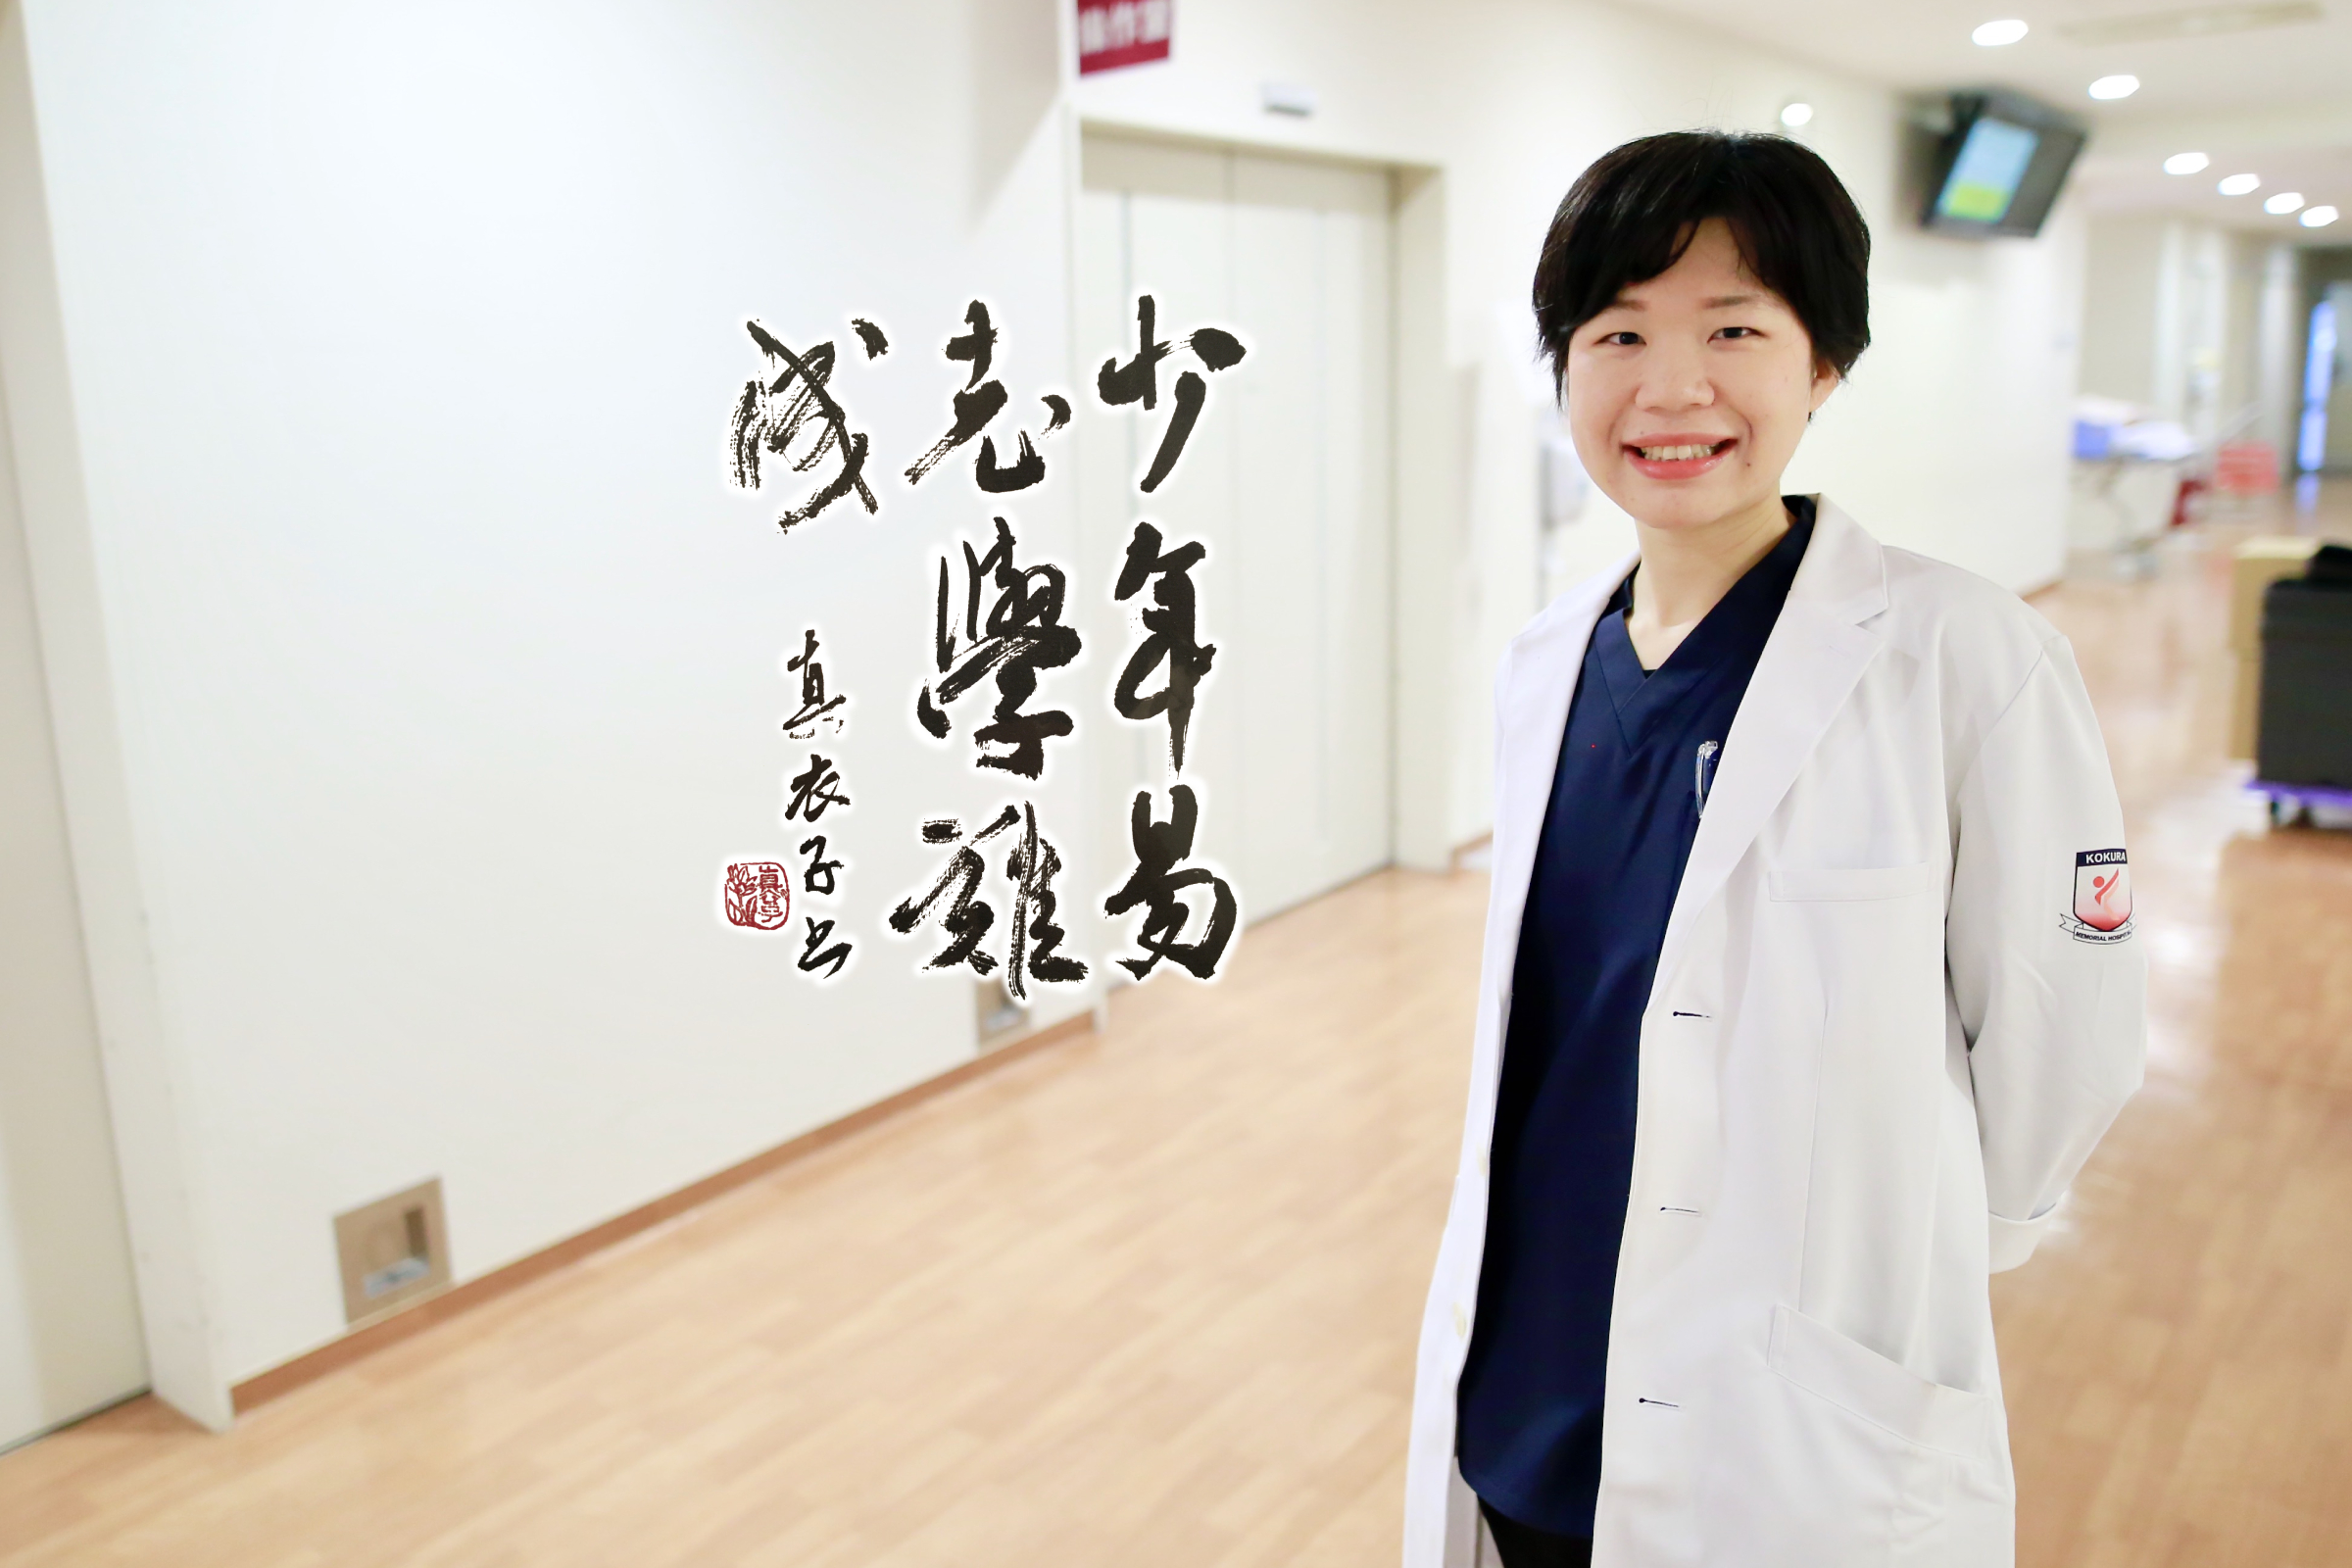 少年易
老學難
成
真衣子書
KOKURA
MEMORIAL HOSPITAL